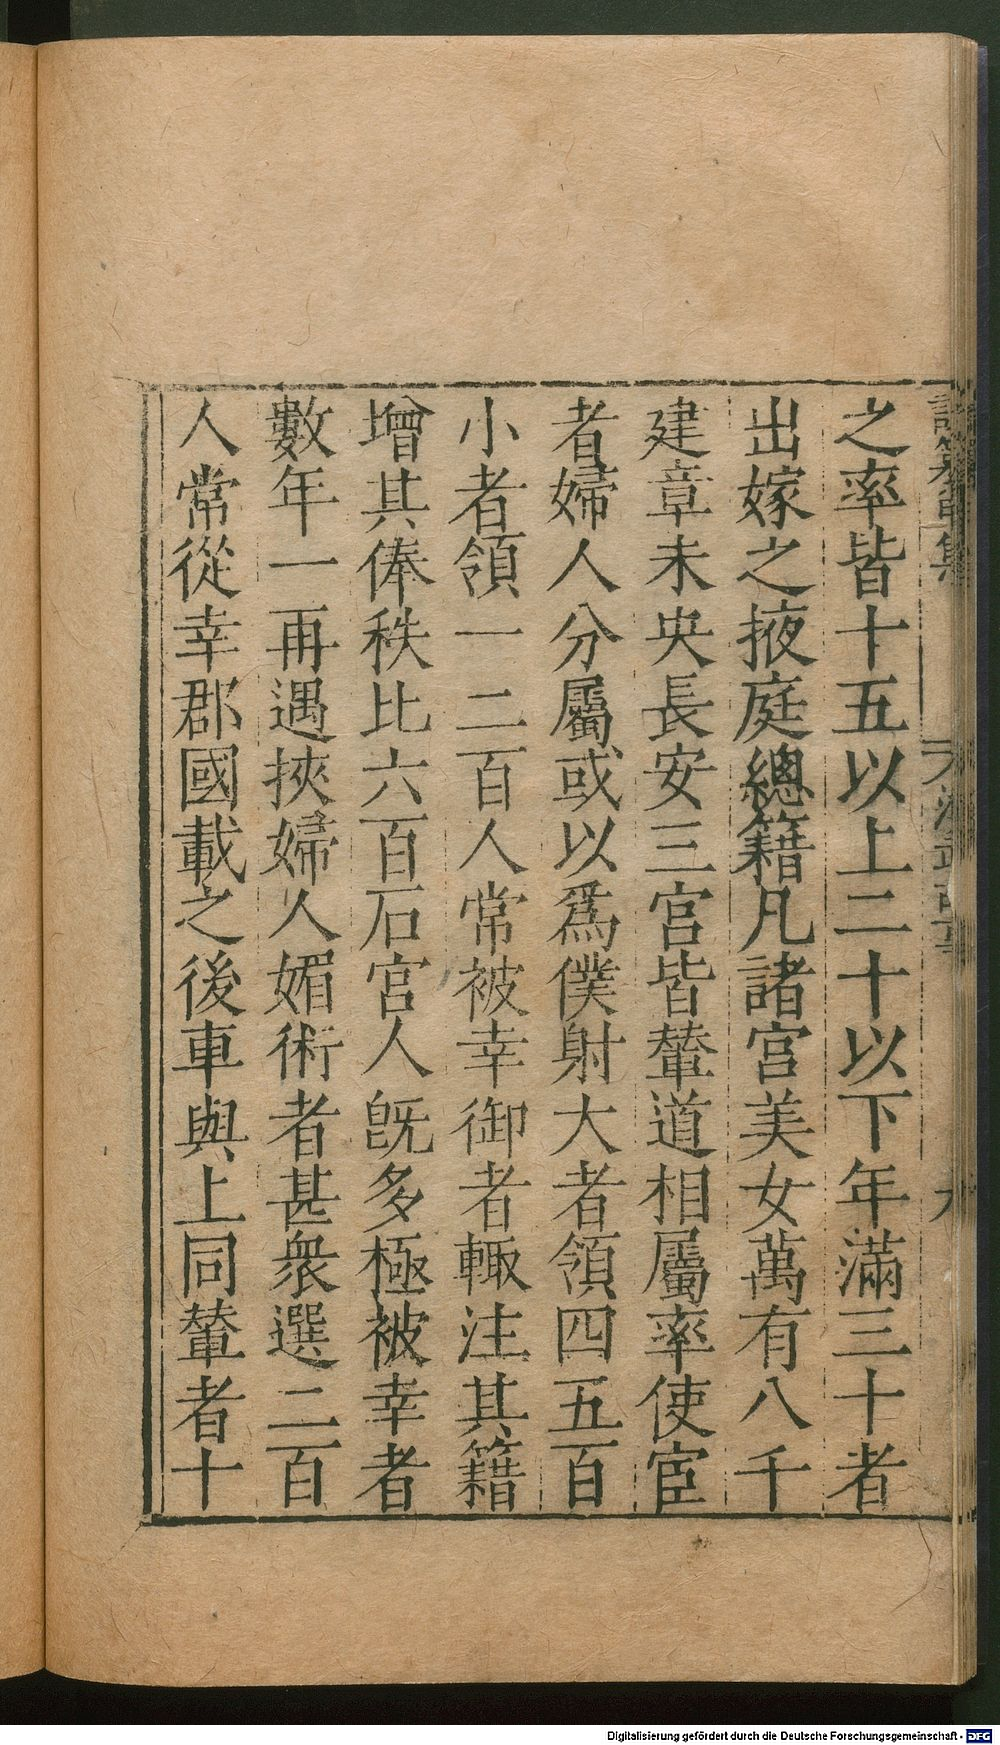 之率皆十五以上二十以下年滿三十者
出嫁之掖庭總籍凡諸宮美女萬有八千
建章未央長安三宮皆輦道相屬率使宦
者婦人分屬或以爲僕射大者領四五百
小者領一二百人常被幸御者輙注其籍
增其俸秩比六百石宮人旣多極被幸者
數年一再遇挾婦人媚術者甚衆選二百
人常從幸郡國載之後車與上同輦者十
Digitalisierung gefördert durch die Deutsche Forschungsgemeinschaft - DFG